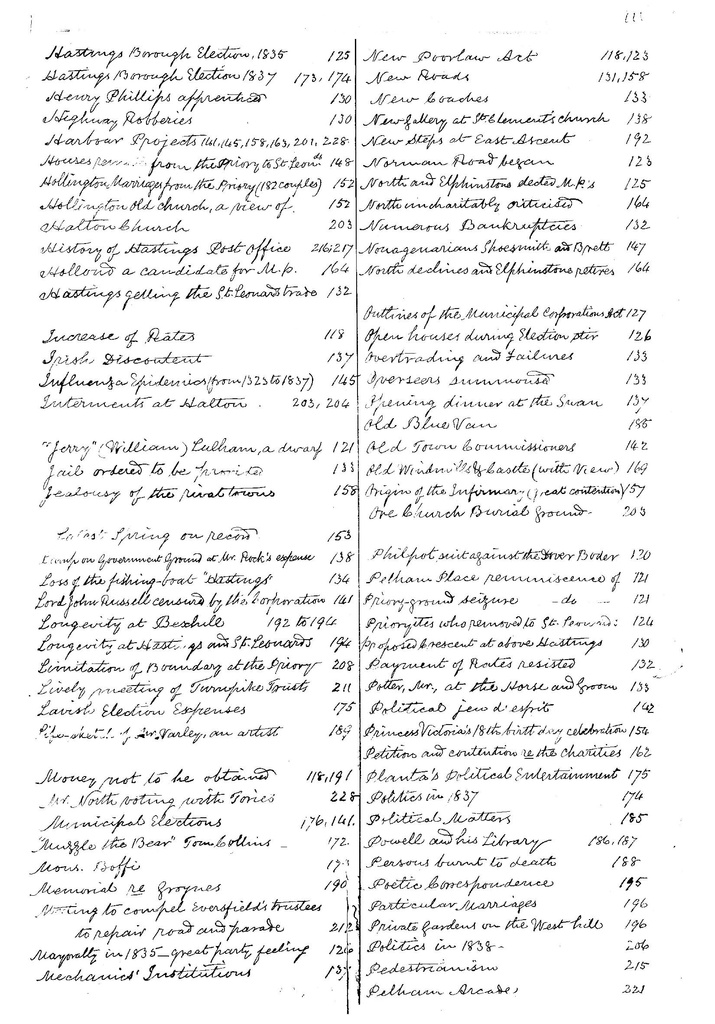 111
Hastings Borough Election, 1835 125
Hastings Borough Election 1837 173, 174
Henry Phillips apprentice 130
Highway Robberies 130
Harbour Projects 141, 145, 158, 163, 201, 228
Houses from the Priory to St Leonds 148
Hollington Marriages from the Priory (182 couples) 152
Hollington Old church, a view of 152
Halton Church 203
History of Hastings Post Office 216, 217
Hollond a candidate for M.p. 164
Hastings getting the St. Leonards trade 132
Increase of Rates 118
Irish Discontent 137
Influenza Epidemics (from 1323 to 1837) 145
Interments at Halton . 203, 204
"Jerry" (William) Lulham, a dwarf 121
Jail ordered to be 133
Jealousy of the rival towns 158
Latest Spring on record 153
Lamp on Government Ground at Mr. Rock's expense 138
Loss of the fishing-boat "Hastings" 134
Lord John Russell censured by the Corporation 141
Longevity at Bexhill 192 to 194
Longevity at Hastings and St. Leonards 194
Limitation of Boundary at the Priory 208
Lively meeting of Turnpike Trusts 211
Lavish Election Expenses 175
Life-sketch of Mr Varley, an artist 189
Money not to be obtained 118, 191
Mr. North voting with Tories 228
Municipal Elections 176, 141.
"Muzzle the Bear" Tom Collins 172
Mons. Boffi
Memorial re Groynes 190
Meeting to compel Eversfield's trustees
to repair road and parade 212
Mayoralty in 1835 — great party feeling 126
Mechanics' Institutions 137
New Poorlaw Act 118, 123
New Roads 131, 158
New Coaches 133
New Gallery at St Clement's church 138
New Steps at East Ascent 192
Norman Road began 123
North and Elphinstone elected M.P.'s 125
North uncharitably criticised 164
Numerous Bankruptcies 132
Nonagenarians Shoesmith and Brett 147
North declines and Elphinstone retires 164
Outlines of the Municipal Corporations Act 127
Open houses during Election stir 126
Overtrading and Failures 133
Overseers summoned 133
Opening dinner at the Swan 137
Old Blue Van 185
Old Town Commissioners 142
Old Windmills & Castle (with View) 169
Origin of the Infirmary (great contention) 157
Ore Church Burial Ground 203
Philpot suit against the Dover Boder 120
Pelham Place reminiscence of 121
Priory-ground seizure - do - 121
Prioryites who removed to St. Leonards: 124
Proposed Crescent at above Hastings 130
Payment of Rates resisted 132
Potter, Mr., at the Horse and Groom 133
Political jeu d'esprit 142
Princess Victoria's 18th birthday celebration 154
Petition and contention re the charities 162
Planta's Political Entertainment 175
Politics in 1837 174
Political Matters 185
Powell and his Library 186, 187
Persons burnt to death 188
Poetic Correspondence 195
Particular Marriages 196
Private Gardens on the West hill 196
Politics in 1838 - 206
Pedestrianism 215
Pelham Arcade 221